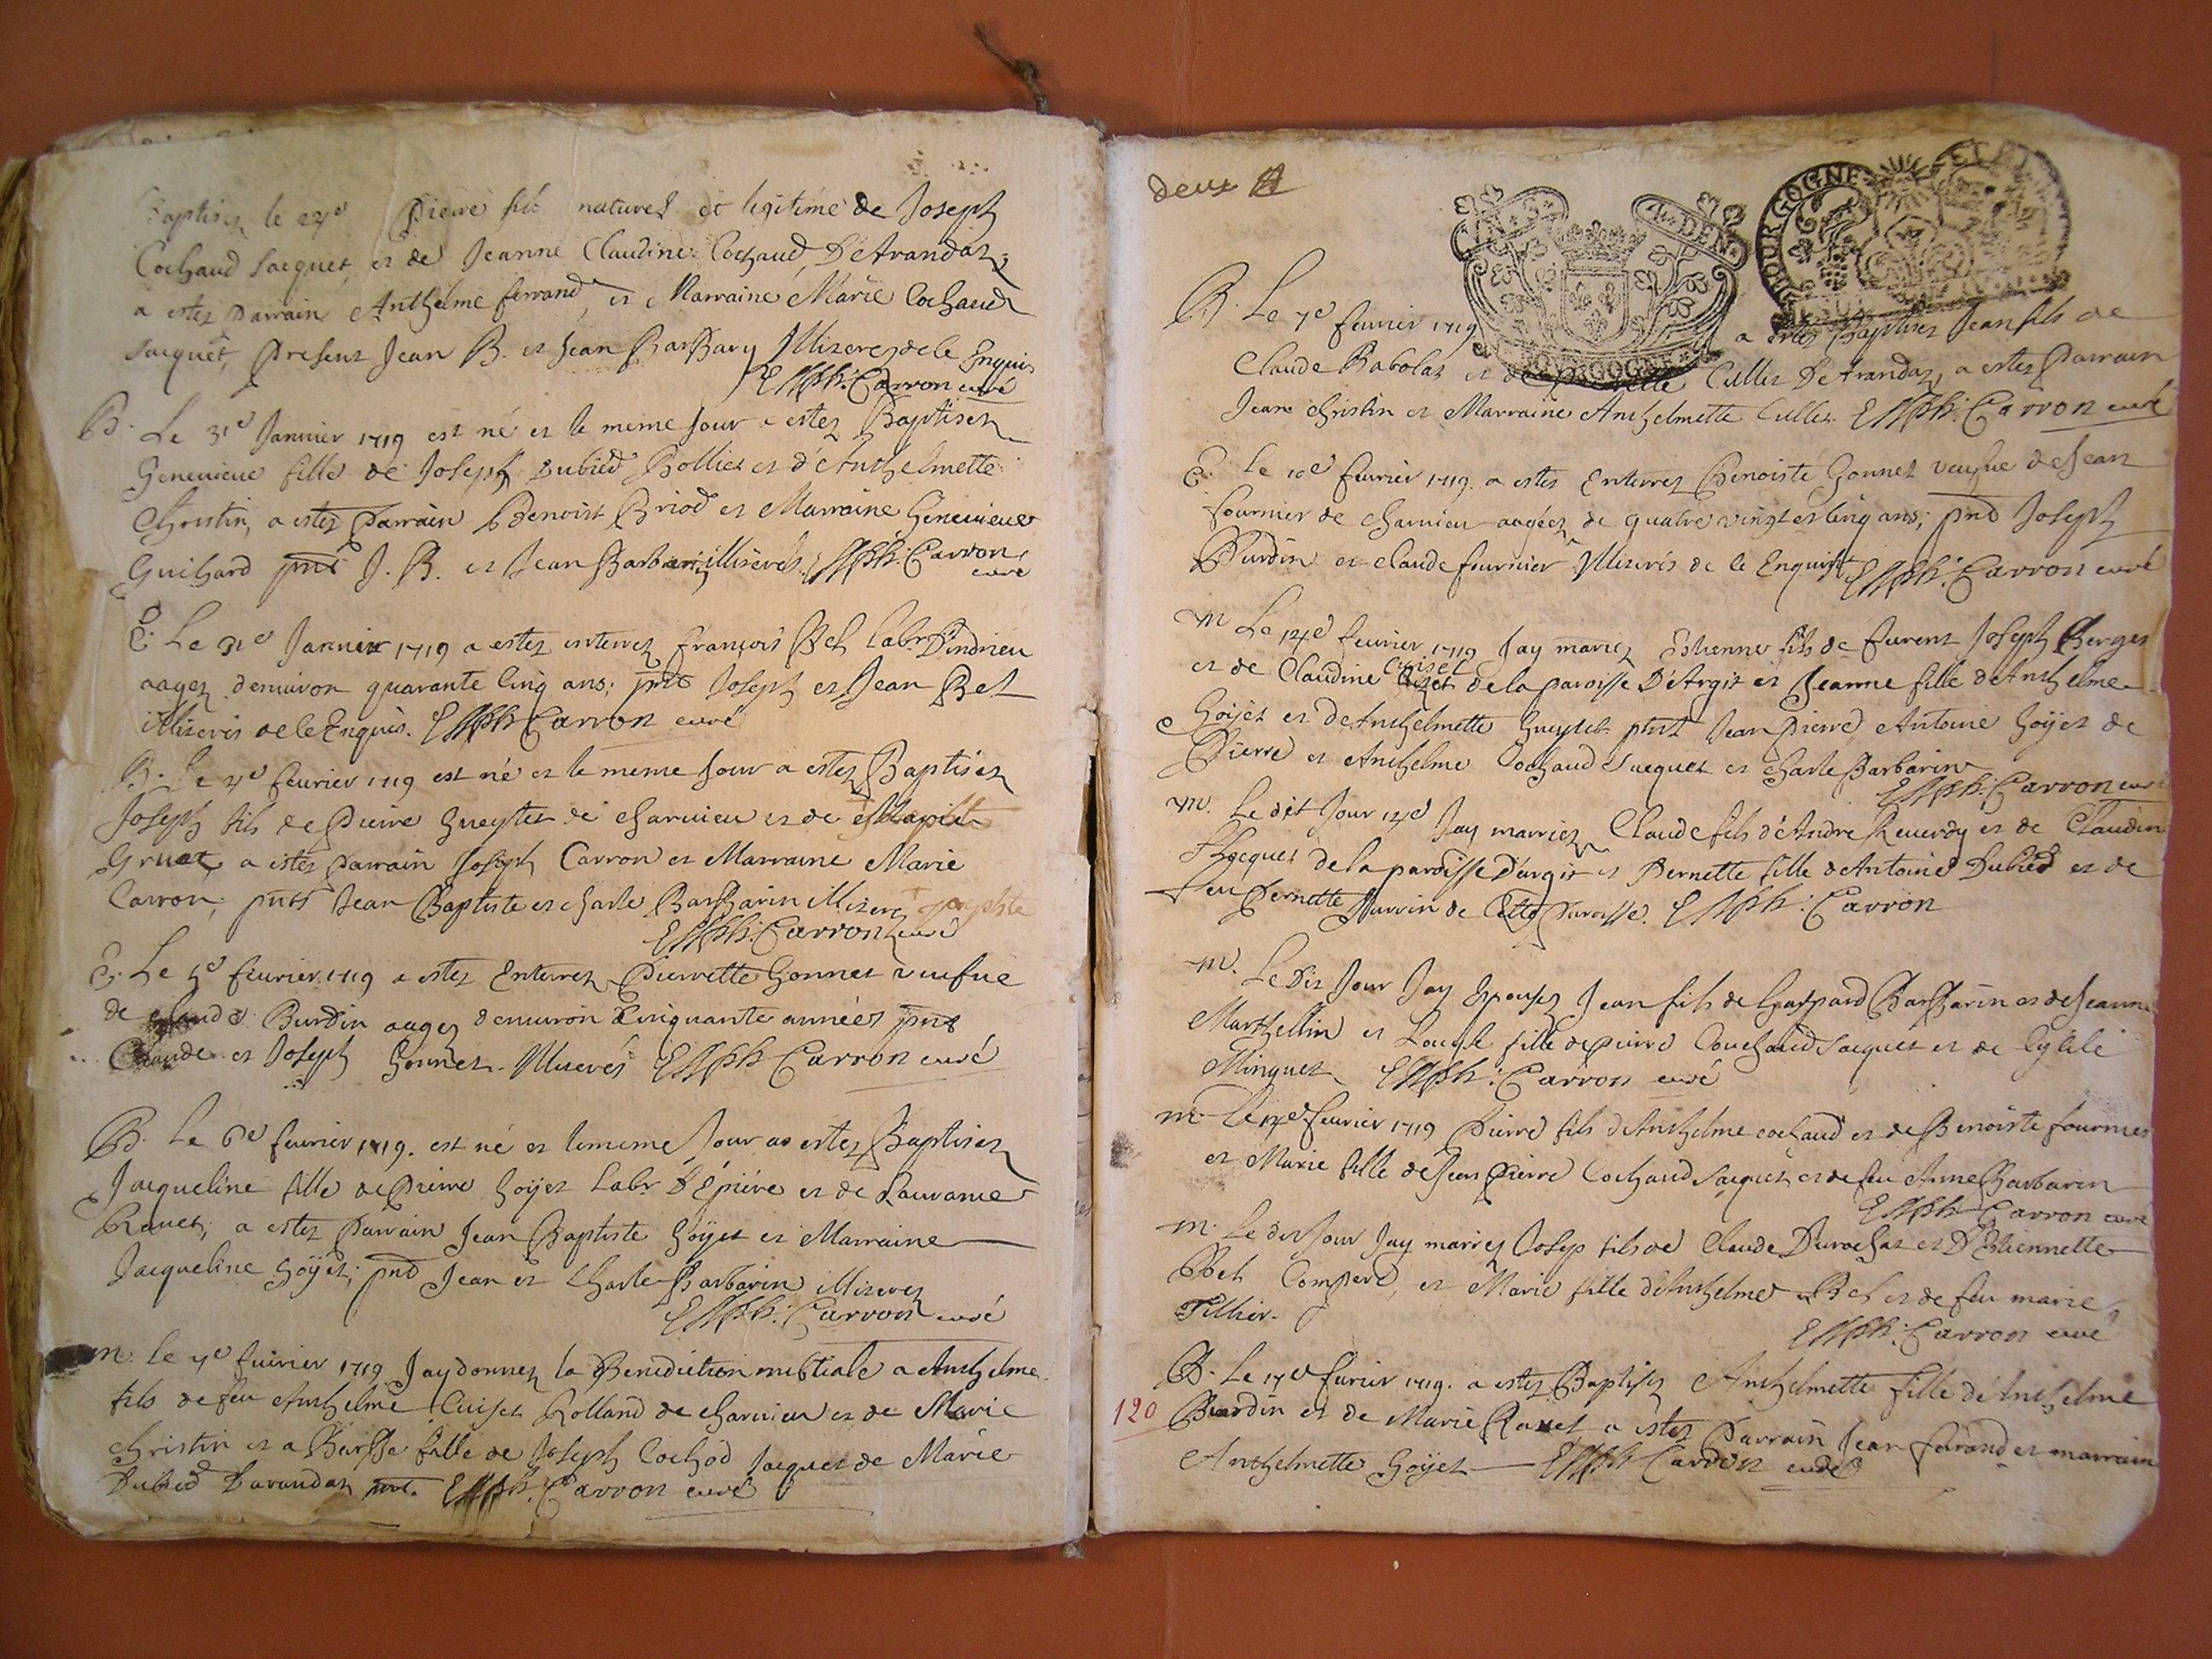 Baptisez le 27e Pierre fils naturel et legitime de Joseph
Cochaud Jacquet, et de Jeanne Claudine Cochaud, D'Arandaz,
a estez Parrain Anthelme ferrand, et Marraine Marie Cochaud
Jacquet, Present Jean B. et Jean BarBary Illiterez de le Enquis
Carron curé
B. Le 31e Januier 1719 est né et le meme Jour a estez Baptisez
Geneuieue fille de Joseph Dubied Rollier et d'Anthelmette
Christin, a estez Parrain Benoist Briod et Marraine Geneuieue
Guihard pnts J. B. et Jean Barbarin illiterés Carron
curé
E. Le 31e Januier 1719 a estez enterrez françois Bel labr D'indrieu
aagez denuiron quarante Cinq ans; pnts Joseph et Jean Bel
illiterés de le Enquis. Carron curé
B. Le 4e feurier 1719 est né et le meme Jour a estez Baptisez
Joseph fils de Pierre Gueyttet de charuieu et de
Gruat, a estez Parrain Joseph Carron et Marraine Marie
Carron; pnts Jean Baptiste et charle BarBarin illiterez
Carron curé
E. Le 5e feurier 1719 a estez Enterrez Pierrette Gonnet veufue
de Claude Burdin aagez denuiron Cinquante années pnts
Claude et Joseph Gonnet. Illiterés Carron curé
B. Le 6e feurier 1719. est né et le meme Jour a estez Baptisez
Jacqueline fille de Pierre Goÿet Labr D'Épiére et de
Rauet, a estez Parrain Jean Baptiste Goÿet et Marraine
Jacqueline Goÿet; pnts Jean et Charle Barbarin illiterez
Carron curé
m. le 7e feurier 1719 Jay donnez la Benediction nubtiale a Anthelme
fils de feu Anthelme Cuiset Rolland de charuieu et de Marie
christin et a fille de Joseph Cochod Jacquet de Marie
Dubied Darandaz pnts. Carron curé
deux
B. Le 7e feurier 1719 a estez Baptisez Jean fils de
Claude Babolat et de Cullet De Arandaz, a estez Parrain
Jean christin et Marraine Anthelmette Cullet. Carron curé
E. Le 10e feurier 1719. a estez Enterrez Benoiste Gonnet veufue de Jean
fournier de charuieu aagéez de quatre vingt et Cinq ans; pnts Joseph
Burdin et claude fournier Illiterés de le Enquist Carron curé
m Le 14e feurier 1719 Jay mariez Estienne fils de furent Joseph Berger
et de Claudine Cuiset de la paroisse D'Argit et Jeanne fille de Anthelme
Goÿet et de Anthelmette Gueytet pnts Jean Pierre Antoine Goÿet de
Pierre et Anthelme Cochaud Jacquet et charle Barbarin
Carron curé
m. Le dit Jour 14e Jay marriez Claude fils d'Andre Reuerdy et de Claudin
de la paroisse D'argit et Pernette fille de Antoine Dubied et de
feu Pernette de Cette Paroisse. Carron
m. Le Dit Jour Jay Epousez Jean fils de Gaspard BarBarin et de Jeanne
Marthellin et fille de pierre Couchaud Jacquet et de
Minguet Carron curé
m. Le 14e feurier 1719 Pierre fils d'Anthelme cochaud et de Benoiste fournier
et Marie fille de Jean Pierre Cochaud Jacquet et de feu Anne Barbarin
Carron curé
m. Le dit Jour Jay marriez Josep fils de Claude Durochat et D'Estiennette
Bel Compere, et Marie fille d'Anthelme Bel et de feu marie
Tillier.
Carron curé
B. Le 17e feurier 1719. a estez Baptisez Anthelmette fille d'Anthelme
120 Burdin et de Marie Rauet a estez Parrain Jean ferrand et marrain
Anthelmette Goÿet Carron curé
DEN.
BOURGOGNE
BOURGOGNE